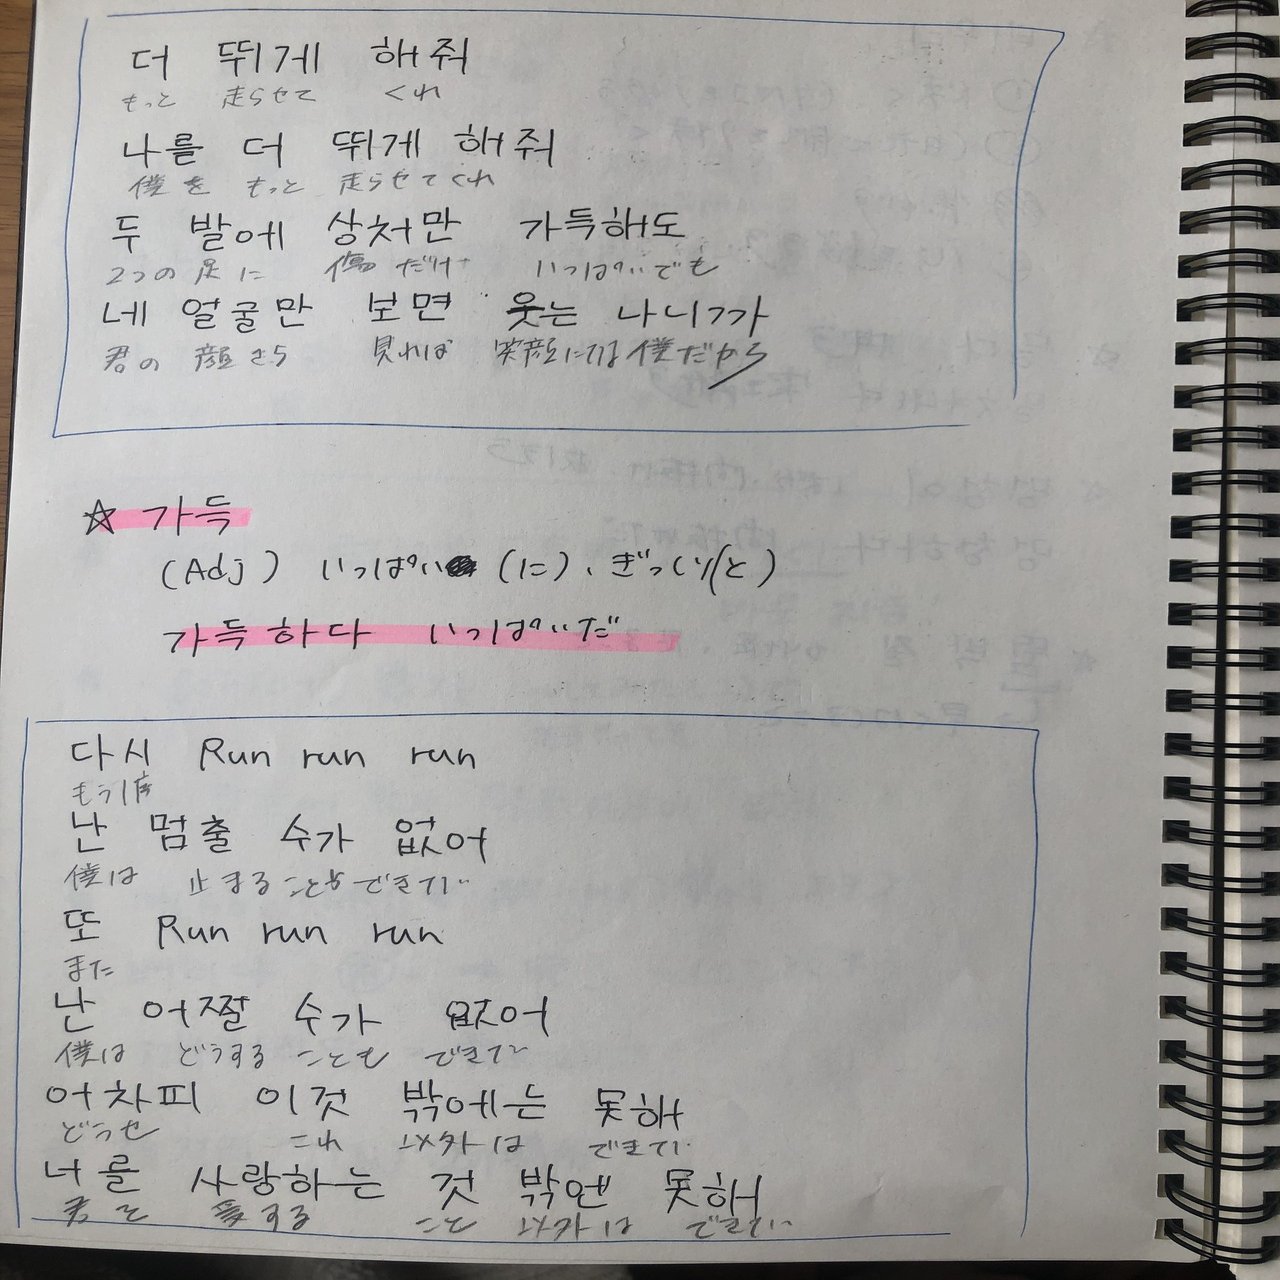 더 뛰게 해줘
もっと 走らせて くれ
나를 더 뛰게 해줘
僕を もっと 走らせてくれ
두 발에 상처만 가득해도
2つの足に 傷だけ いっぱいでも
네 얼굴만 보면 웃는 나니까
君の 顔さら 見れば 笑顔になる僕だから
☆ 가득
(Adj) いっぱい (に)、ぎっくり(と)
가득하다 いっぱいだ
다시 Run run run
もう1度
난 멈출 수가 없어
僕は 止まることも できない
또 Run run run
また
난 어쩔 수가 없어
僕は どうする ことも できない
어차피 이것 밖에는 못해
どうせ これ 以外は できない
너를 사랑하는 것 밖엔 못해
君を 愛する こと 以外は できない